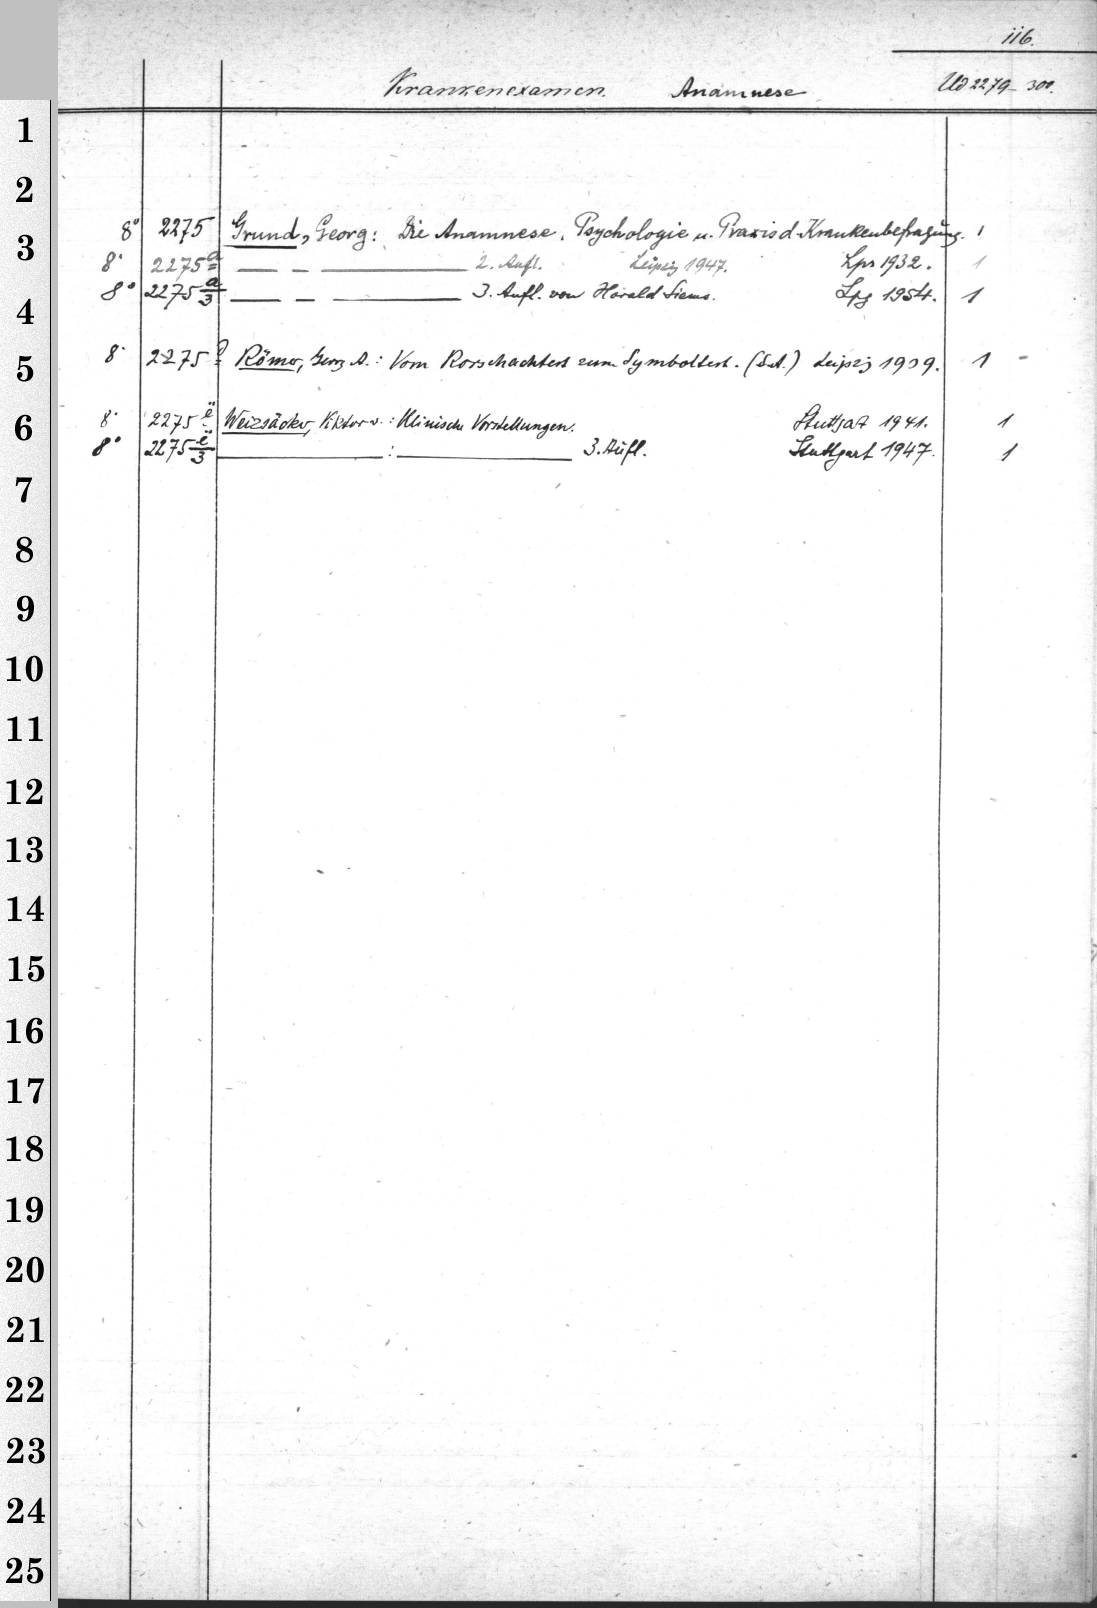 116.
Krankenexamen. Anamnese Ud 2279-300.
8° 2275 Grund, Georg: Die Anamnese. Psychologie u. Praxis d. Krankenbefragung. 1
8° 2275 a — — — 2. Aufl. Leipzig 1947. Lps 1932. 1
8° 2275 a/3 — — — 3. Aufl. von Harald Siems. Lpg 1954. 1
8° 2275 Römer, Georg A.: Vom Rorschachtest zum Symboltest. Leipzig 1939. 1 -
8° 2275 ë Weizsäcker, Viktor v.: Klinische Vorstellungen. Stuttgart 1941. 1
8° 2275 ë/3 — : — 3. Aufl. Stuttgart 1947. 1
1
2
3
4
5
6
7
8
9
10
11
12
13
14
15
16
17
18
19
20
21
22
23
24
25